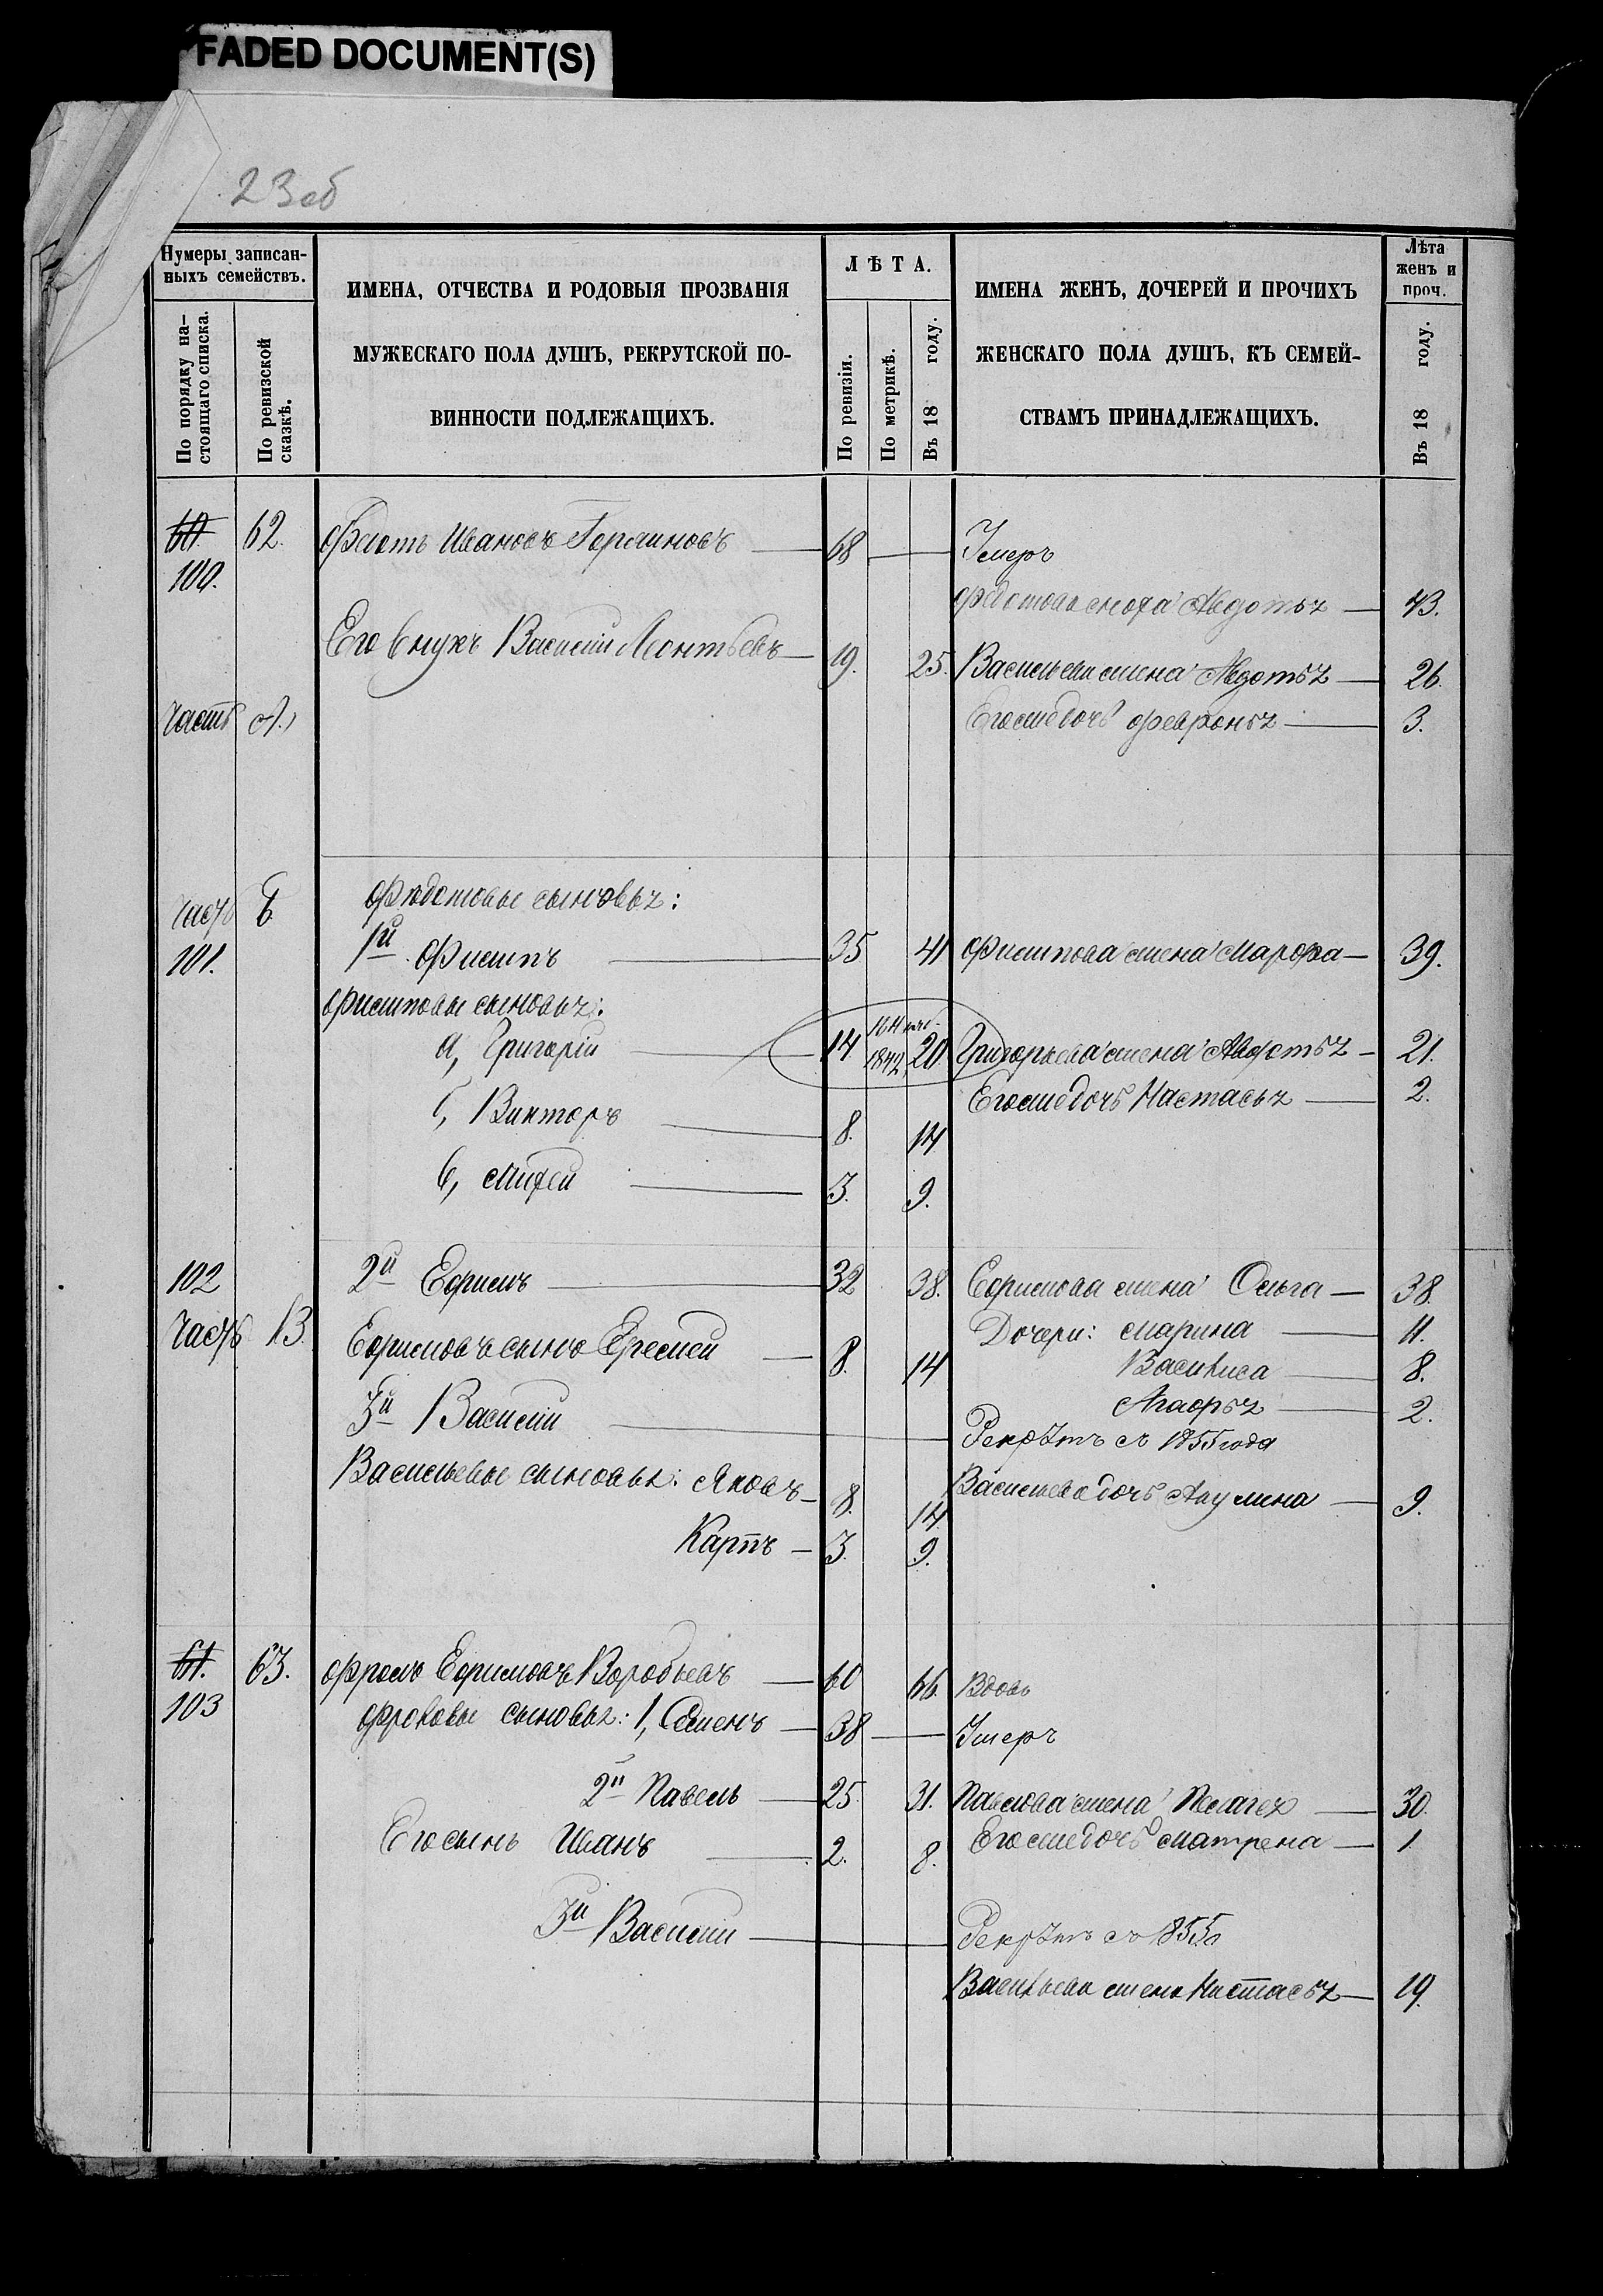 FADED DOCUMENT(S)
23об
Нумеры записан-
ныхъ семействъ.
По порядку на-
стоящаго списка.
По ревизской
сказкѣ.
ИМЕНА, ОТЧЕСТВА И РОДОВЫЯ ПРОЗВАНІЯ
МУЖЕСКАГО ПОЛА ДУШЪ, РЕКРУТСКОЙ ПО-
ВИННОСТИ ПОДЛЕЖАЩИХЪ.
ЛѢТА.
По ревизіи.
По метрикѣ.
Въ 18 году.
ИМЕНА ЖЕНЪ, ДОЧЕРЕЙ И ПРОЧИХЪ
ЖЕНСКАГО ПОЛА ДУШЪ, КЪ СЕМЕЙ-
СТВАМЪ ПРИНАДЛЕЖАЩИХЪ.
Лѣта
женъ и
проч.
Въ 18 году.
60. 62. Ивановъ 68 Умеръ
100.
сноха Авдотья 43.
Его внукъ Василій Леонтьевъ 19. 25. Васильева жена Авдотья 26.
Часть А. Егоже дочь Февронья 3.
Часть Б. Федотовы сыновья:
101. 1й Филипъ 35 41 Филипова жена Марфа 39.
Филиповы сыновья:
а, Григорій 14 1842 20. Григорьева жена Авдотья 21.
Егоже дочь Настасья 2.
б, Викторъ 8. 14
в, Михей 3. 9.
102 2й Ефимъ 32 38. Ефимова жена Ольга 38.
Часть В. Дочери: Марина 11.
Ефимовъ сынъ Еремей 8. 14 Василиса 8.
Агафья 2.
3й Василій Рекрутъ съ 1855 года
Васильевы сыновья: Яковъ 8. 14. Васильева дочь Акулина 9.
Карпъ 3. 9.
61. 63. Фролъ Ефимовъ Воробьевъ 60 66. Вдовъ
103 Фроловы сыновья: 1, Семенъ 38 Умеръ
2й Павелъ 25. 31. Павлова жена Пелагея 30.
Его сынъ Иванъ 2. 8. Егоже дочь Матрена 1.
3й Василій Рекрутъ съ 1855
Васильева жена Настасья 19.